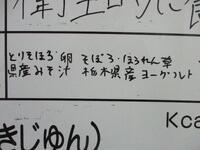 とりそぼろ・卵そぼろ・ほうれん草
県産みそ汁 栃木県産ヨーグルト
Kca
きじゅん)